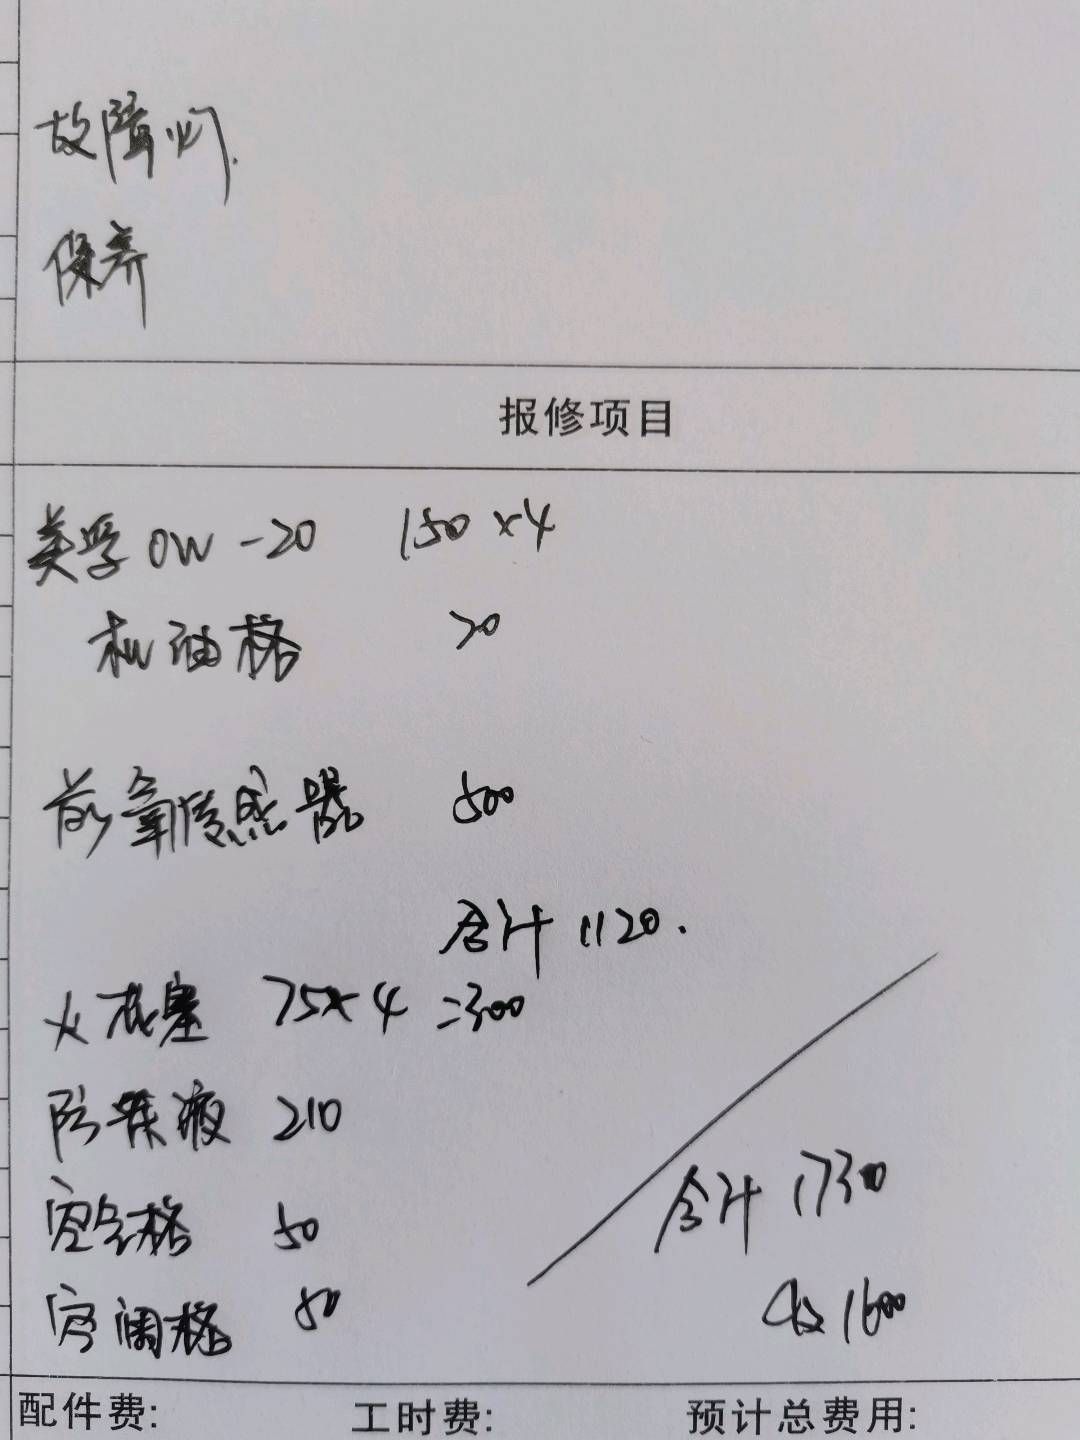 故障灯.
保养
报修项目
美孚 0W-20 150×4
机油格 20
前氧传感器 500
合计 1120.
火花塞 75×4=300
防冻液 210
空气格 50
合计 1730
空调格 50
收 1600
配件费: 工时费: 预计总费用: